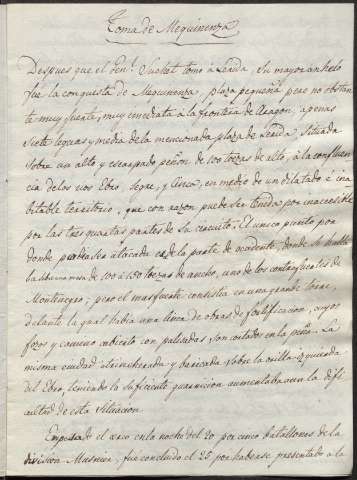 Toma de Mequinenza
Despues que el Gen.l Suchet tomó à Lerida, Su mayor anhelo
fue la conquista de Mequinenza, plaza pequeña pero no obstan
te muy fuerte, muy inmediata à la frontera de Aragon, apenas
Siete leguas y media de la mencionada plaza de Lerida. Situada
sobre un alto y escarpado peñon de 100 toezas de alto, à la confluen
cia de los rios Ebro, Segre, y Cinca, en medio de un dilatado è inha
bitable territorio, que con razon puede ser tenida por inaccesible
por las tres quartas partes de su circuito. El unico punto por
donde podia ser atacada es de la parte de occidente, donde se halla
de 100 à 150 toezas de ancho, uno de los contrafuertes de
Montenegro; pero el mas fuerte consistia en una grande torre,
delante la qual habia una linea de obras de fortificacion, cuyos
fozos y camino cubierto con palizadas son cortados en la peña. La
misma ciudad atrincherada y baricada sobre la orilla izquierda
del Ebro, teniendo la suficiente guarnicion aumentaba aun la difi
cultad de esta Situacion.
Empezado el cerco en la noche del 20 por cinco batallones de la
division Musnier, fue concluido el 25 por haberse presentado a la